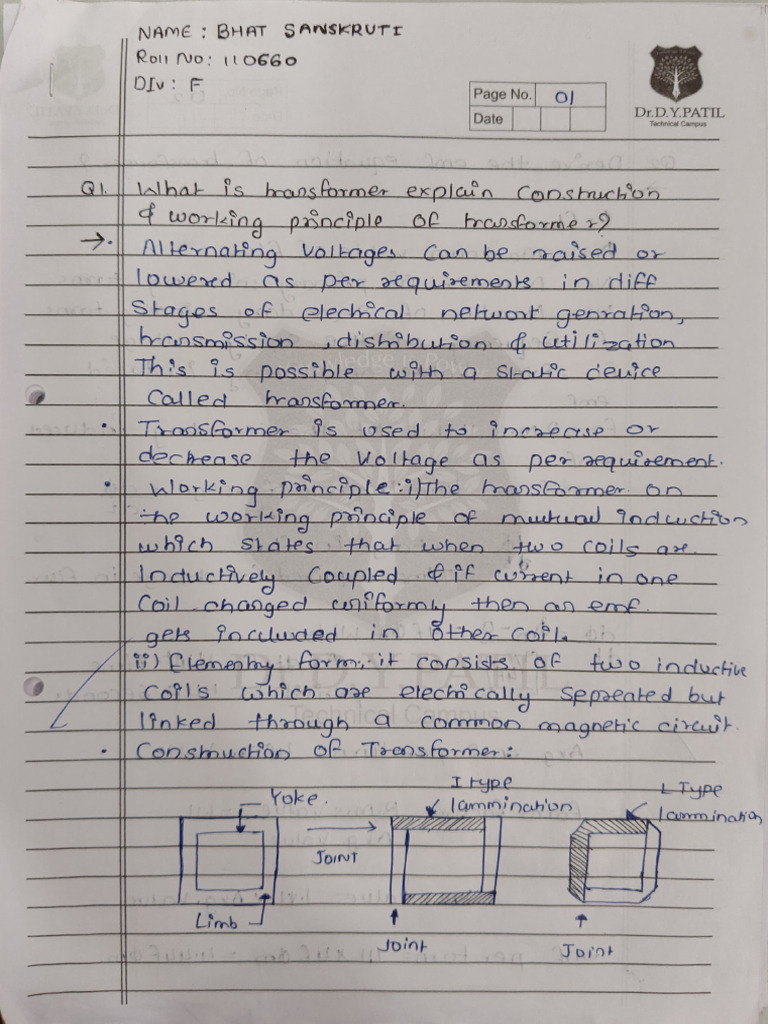 NAME : BHAT SANSKRUTI
Roll No: 110660
DIV: F
Page No. 01
Date
Dr.D.Y.PATIL
Technical Campus
Q1. What is transformer explain construction
& working principle of transformer?
→ • Alternating voltages can be raised or
lowered as per requirements in diff
stages of electrical network genration,
transmission, distribution & utilization
This is possible with a static device
called transformer.
• Transformer is used to increase or
decrease the voltage as per requirement.
• Working principle: i) The transformer on
the working principle of mutual induction
which states that when two coils are
Inductively coupled & if current in one
coil changed uniformly then an emf
gets included in other coil.
ii) Elementry form, it consists of two inductive
coils which are electrically sepreated but
linked through a common magnetic circuit.
Technical Campus
• Construction of Transformer:
Yoke.
Limb
JOINT
I type
lammination
Joint
L Type
lammination
Joint